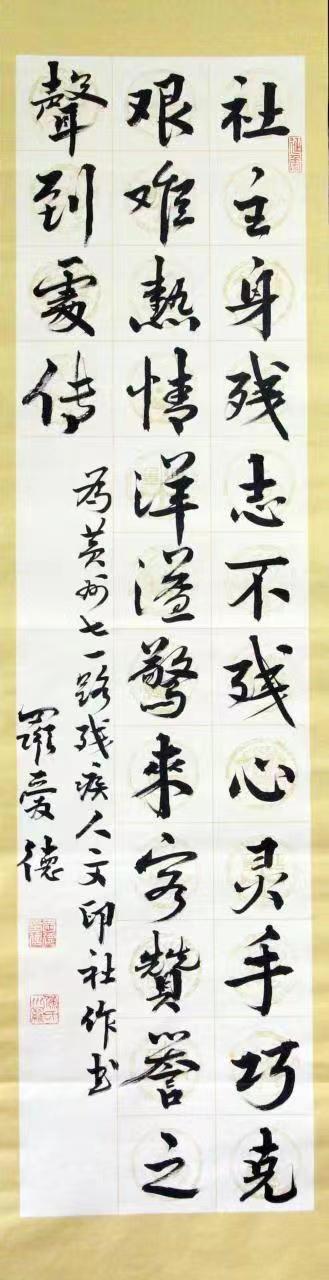 社主身残志不残心灵手巧克
艰难热情洋溢驚来客贊誉之
聲到處传
为黄州七一路残疾人文印社作书
羅爱德